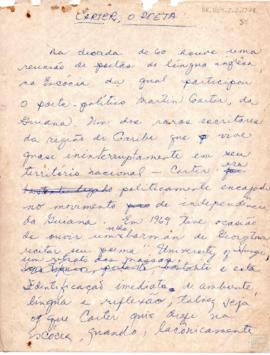 CARTER, O POETA
Na decada de 60 houve uma
reunião de poetas de lingua inglesa
na Escócia da qual participou
o poeta-politico Martin Carter, da
Guiana. Um dos raros escritores
da região do Caribe que vive
quase ininterruptamente em seu
territorio nacional — Carter
politicamente engajado
no movimento de independencia
da Guiana. Em 1969 tive ocasião
de ouvir um barman de Georgetown
recitar seu poema "University of Hunger",
um retrato das massas,
e esta
identificação imediata, de ambiente,
lingua e reflexão, talvez seja
o que Carter quis dizer na
Escócia, quando, laconicamente